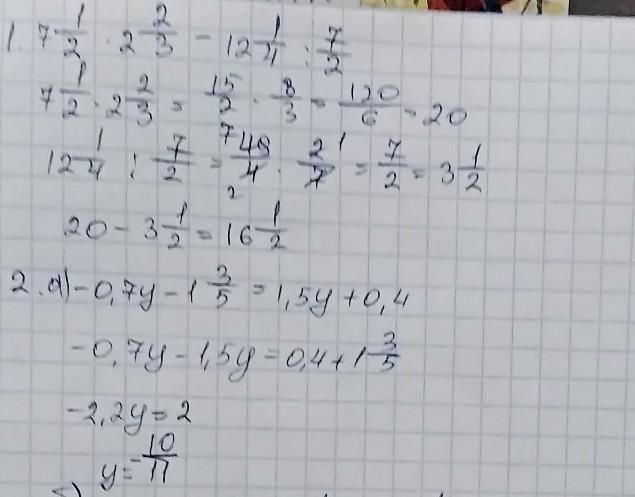 1. 7 1/2 · 2 2/3 - 12 1/4 : 7/2
7 1/2 · 2 2/3 = 15/2 · 8/3 = 120/6 = 20
12 1/4 : 7/2 = 49/4 · 2/7 = 7/2 = 3 1/2
20 - 3 1/2 = 16 1/2
2. a) -0,7y - 1 3/5 = 1,5y + 0,4
-0,7y - 1,5y = 0,4 + 1 3/5
-2,2y = 2
y = -10/11